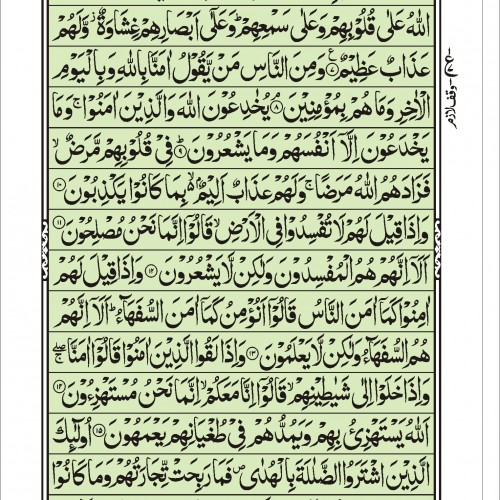 اللّٰهُ عَلٰى قُلُوْبِهِمْ وَعَلٰى سَمْعِهِمْ ؕ وَعَلٰٓى اَبْصَارِهِمْ غِشَاوَةٌ ؗ وَّلَهُمْ
عَذَابٌ عَظِيْمٌ ۷ وَمِنَ النَّاسِ مَنْ يَّقُوْلُ اٰمَنَّا بِاللّٰهِ وَبِالْيَوْمِ
الْاٰخِرِ وَمَا هُمْ بِمُؤْمِنِيْنَ ۘ ۸ يُخٰدِعُوْنَ اللّٰهَ وَالَّذِيْنَ اٰمَنُوْا ۚ وَمَا
يَخْدَعُوْنَ اِلَّاۤ اَنْفُسَهُمْ وَمَا يَشْعُرُوْنَ ؕ ۹ فِىْ قُلُوْبِهِمْ مَّرَضٌ ۙ
فَزَادَهُمُ اللّٰهُ مَرَضًا ۚ وَلَهُمْ عَذَابٌ اَلِيْمٌ ۢ ۙ بِمَا كَانُوْا يَكْذِبُوْنَ ۱۰
وَاِذَا قِيْلَ لَهُمْ لَا تُفْسِدُوْا فِى الْاَرْضِ ۙ قَالُوْۤا اِنَّمَا نَحْنُ مُصْلِحُوْنَ ۱۱
اَلَاۤ اِنَّهُمْ هُمُ الْمُفْسِدُوْنَ وَلٰكِنْ لَّا يَشْعُرُوْنَ ۱۲ وَاِذَا قِيْلَ لَهُمْ
اٰمِنُوْا كَمَاۤ اٰمَنَ النَّاسُ قَالُوْۤا اَنُؤْمِنُ كَمَاۤ اٰمَنَ السُّفَهَآءُ ؕ اَلَاۤ اِنَّهُمْ
هُمُ السُّفَهَآءُ وَلٰكِنْ لَّا يَعْلَمُوْنَ ۱۳ وَاِذَا لَقُوا الَّذِيْنَ اٰمَنُوْا قَالُوْۤا اٰمَنَّا ۖۚ
وَاِذَا خَلَوْا اِلٰى شَيٰطِيْنِهِمْ ۙ قَالُوْۤا اِنَّا مَعَكُمْ ۙ اِنَّمَا نَحْنُ مُسْتَهْزِءُوْنَ ۱۴
اَللّٰهُ يَسْتَهْزِئُ بِهِمْ وَيَمُدُّهُمْ فِىْ طُغْيَانِهِمْ يَعْمَهُوْنَ ۱۵ اُولٰٓئِكَ
الَّذِيْنَ اشْتَرَوُا الضَّلٰلَةَ بِالْهُدٰى ۪ فَمَا رَبِحَتْ تِّجَارَتُهُمْ وَمَا كَانُوْا
وقف لازم